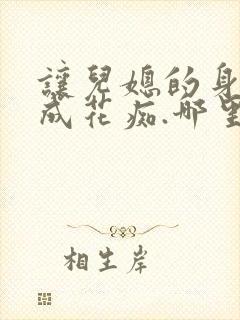 讓兒媳的身
成花痴.哪里
相生岸